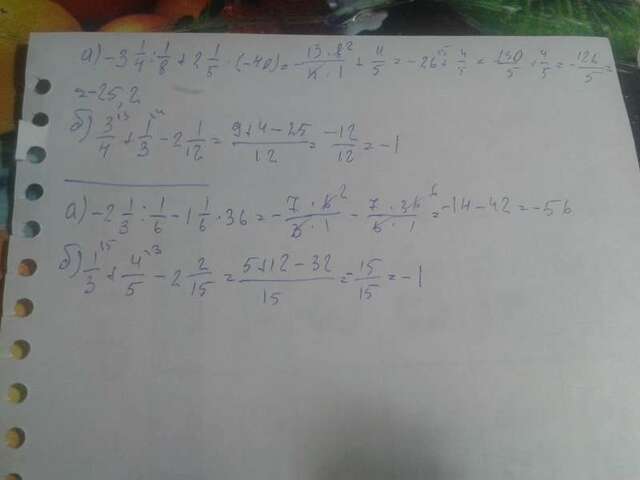 а) -3 1/4 : 1/8 + 2 1/5 · (-40) = - 13·8²/4·1 + 4/5 = -26 + 4/5 = - 130/5 + 4/5 = - 126/5 =
= -25,2
б) 3/4 + 1/3 - 2 1/12 = 9+4-25/12 = -12/12 = -1
а) -2 1/3 : 1/6 - 1 1/6 · 36 = - 7·6²/3·1 - 7·36⁶/6·1 = -14-42 = -56
б) 1/3 + 4/5 - 2 2/15 = 5+12-32/15 = -15/15 = -1